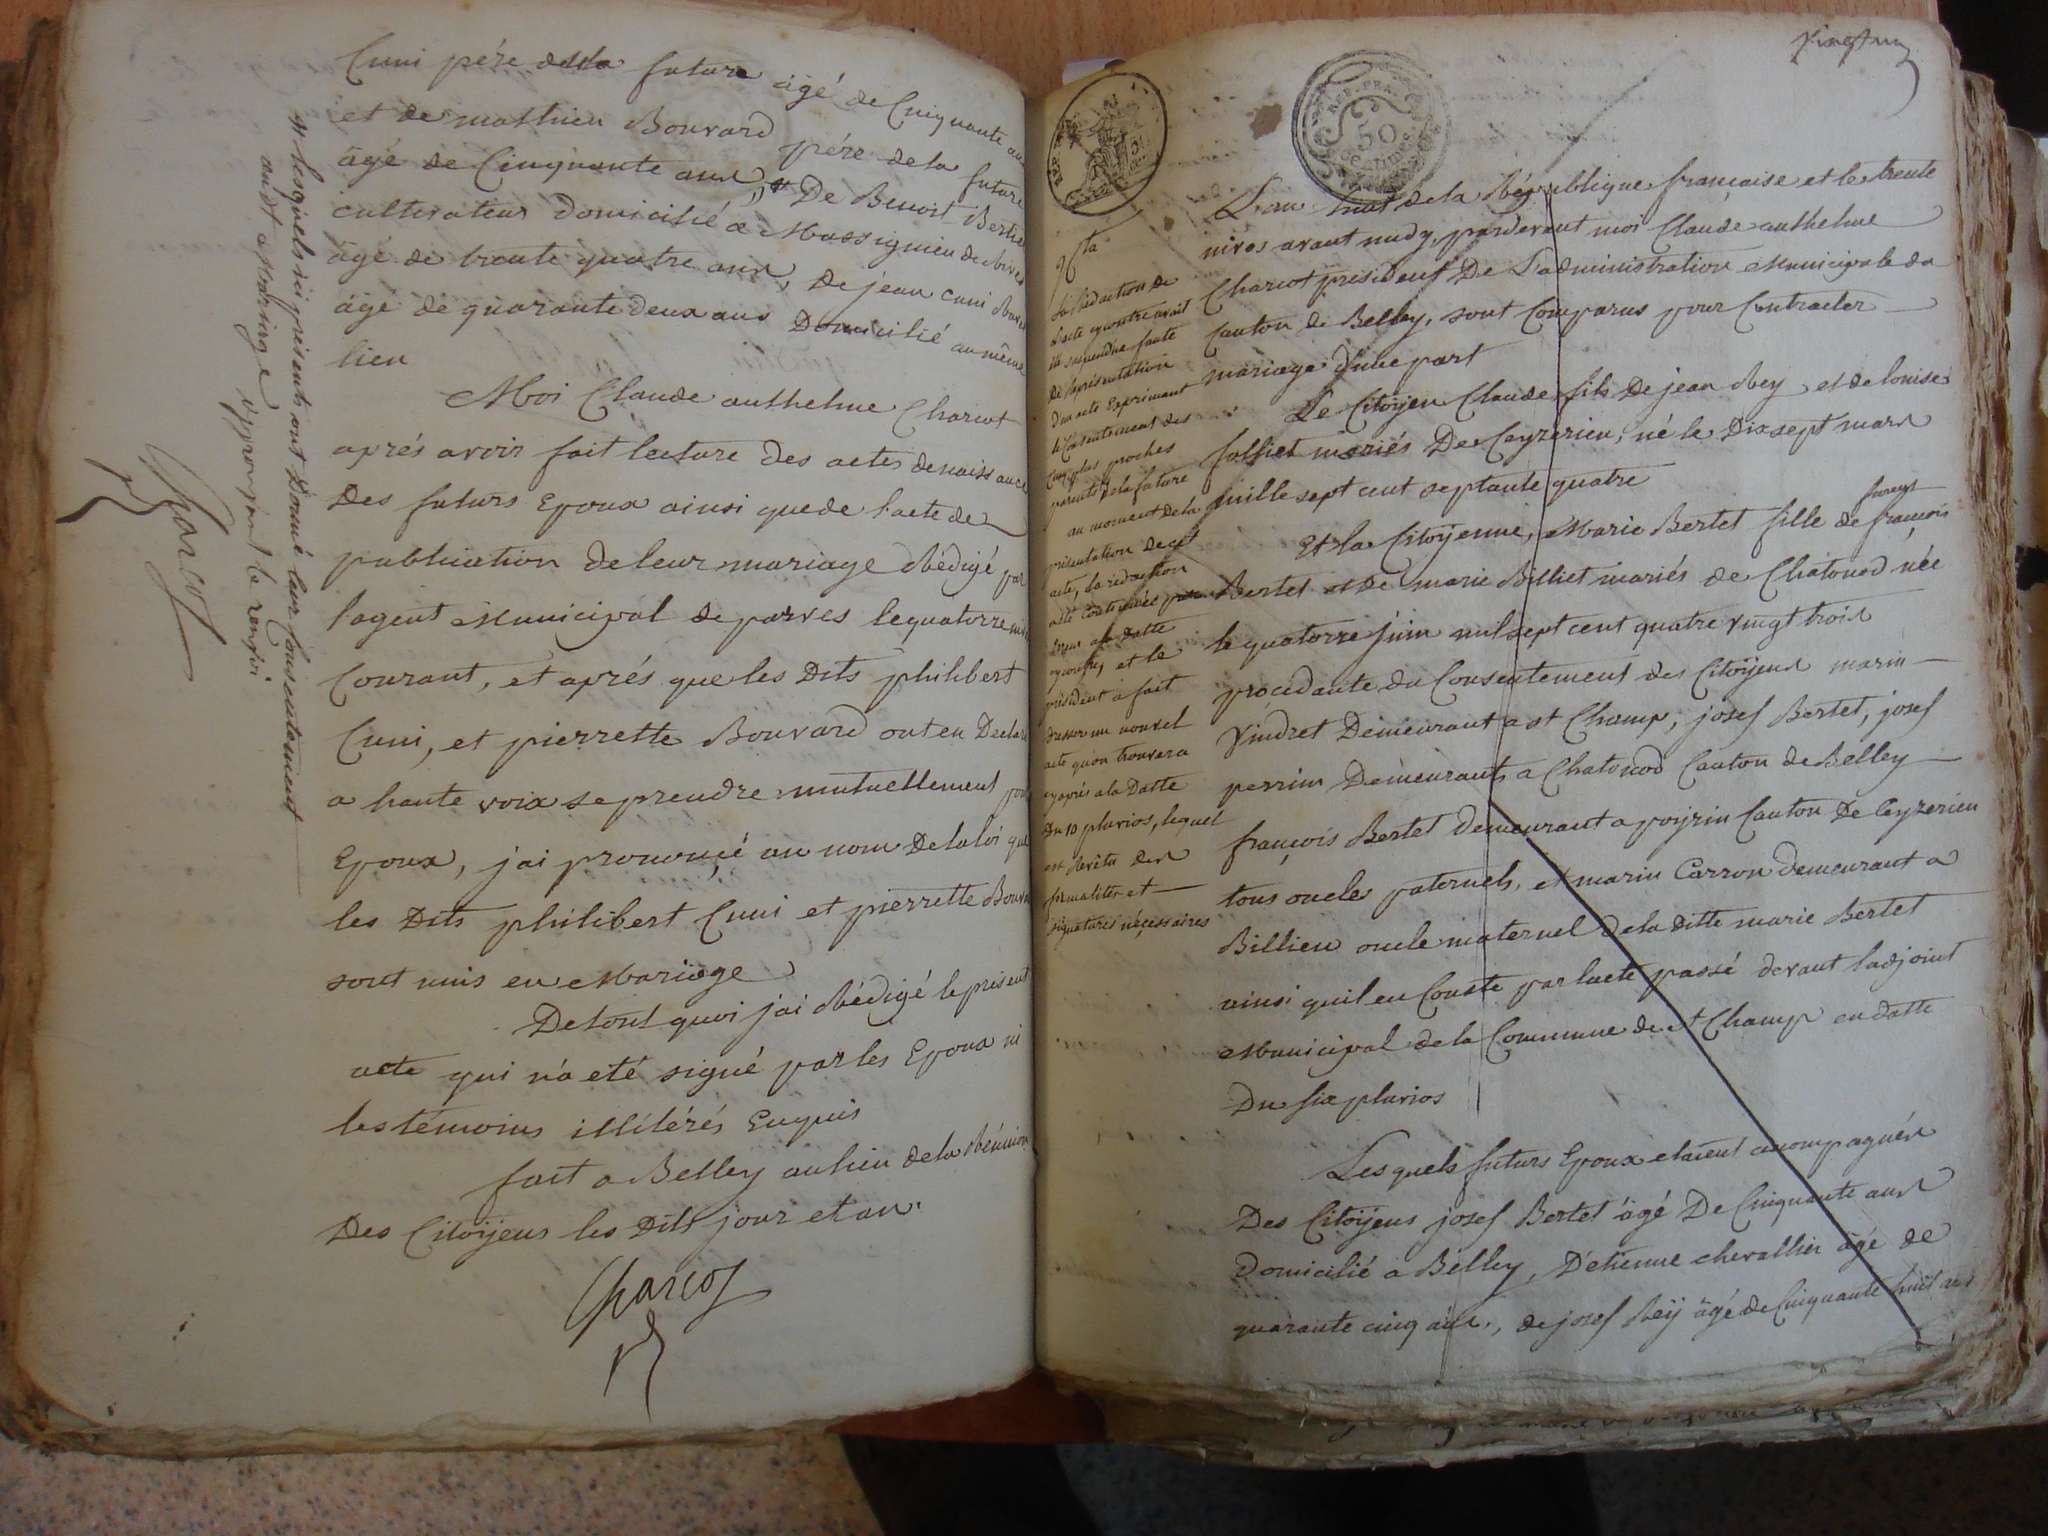 Cuni pére de la future âgé de Cinquante ans
et de mathieu Bouvard pére de la future
âgé de Cinquante ans, # De Benoit Bertier
cultivateur Domicilié a Massignieu de Rives
âgé de trente quatre ans, De jéan cuni
âgé de quarante deux ans Domicilié au même
lieu
Moi Claude authelme Charcot
aprés avoir fait lecture des actes de naissance
Des futurs Epoux ainsi que de l'acte de
publication de leur mariage Rédigé par
l'agent Municipal de parves le quatorze
Courant, et aprés que les Dits philibert
Cuni, et pierrette Bouvard ont en Declaré
a haute voix se prendre mutuellement pour
Epoux, j'ai prononçé au nom De la loi que
les Dits philibert Cuni et pierrette Bouvard
sont unis en Mariage
De tout quoi j'ai Rédigé le présent
acte qui n'a eté signé par les Epoux ni
les témoins illitérés Enquis
fait a Belley au lieu de la Réunion
Des Citoÿens les Dits jour et an.
Charcot
# lesquels ici présents ont Donné leur Consentement
audt Mariage approuvant le renvoi
Charcot
vingt un
REP. FRA.
50
centimes
L'an huit de la République française et le trente
nivos avant midy, pardevant moi Claude authelme
Charcot president De L'administration Municipale du
Canton de Belley, sont Comparus pour Contracter
mariage d'une part
Le Citoÿen Claude fils De jean Rey et de louise
folliet mariés De Ceyzerieu, né le Dix sept mars
mille sept cent septante quatre
Et la Citoÿenne, Marie Bertet fille de françois
Bertet et De marie Billiet mariés de Chatonod née
le quatorze juin mil sept cent quatre vingt trois
procédante du Consentement des Citoÿens marin
Vindret Demeurant a st Champ, josef Bertet, josef
perrin Demeurants a Chatonod Canton de Belley
françois Bertet demeurant a voÿrin Canton De Ceyzerieu
tous oncles paternels, et marin Carron demeurant a
Billieu oncle maternel de la Ditte marie Bertet
ainsi quil en Conste par lacte passé devant ladjoint
Municipal de la Commune de st Champ en datte
Du six pluvios
Lesquels futurs Epoux etaient accompagnés
Des Citoÿens josef Bertet âgé De Cinquante ans
Domicilié a Belley, D'etienne chevallier âgé de
quarante cinq ans, de josef Reÿ âgé de Cinquante huit ans
nta
la Rédaction de
l'acte cy contre avait
été suspendue faute
de Représentation
d'un acte Exprimant
le Consentement des
cinq plus proches
parents de la future
au moment de la
présentation de cet
acte, la redaction
a été continuée
sous la datte
cy contre, et le
président a fait
dresser un nouvel
acte qu'on trouvera
cy aprés a la Datte
Du 10 pluvios, lequel
est Revêtu des
formalités et
signatures neçessaires